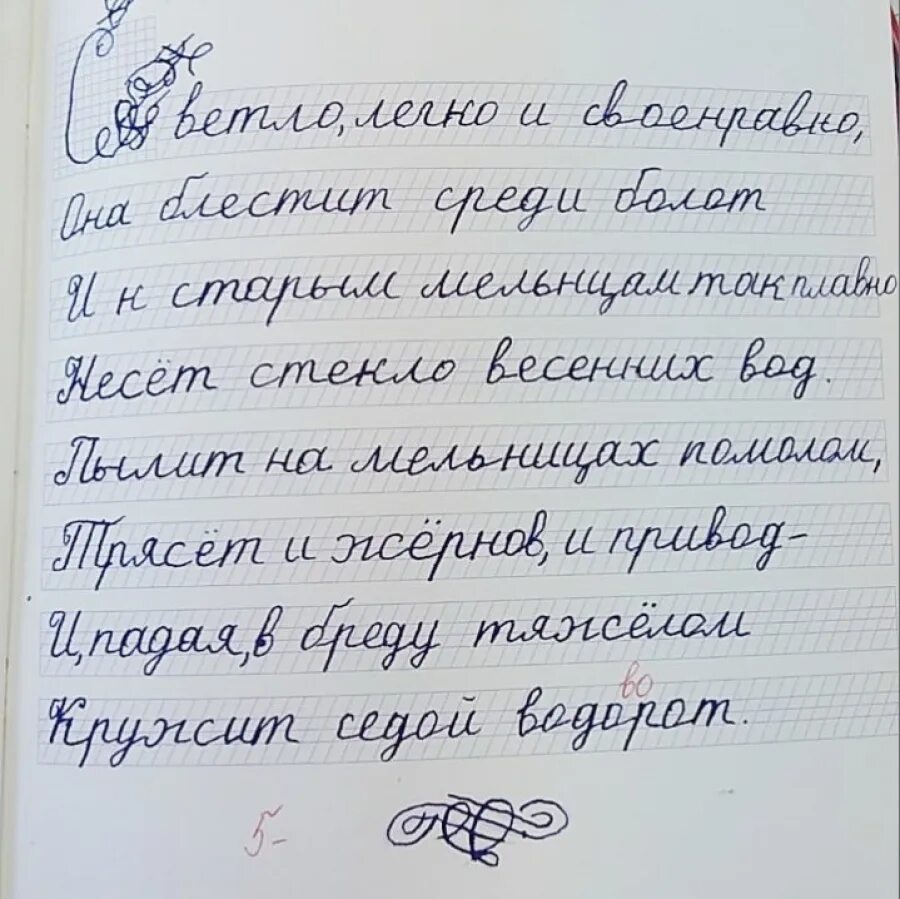 Светло, легко и своенравно,
Она блестит среди болот
И к старым мельнцам так плавно
Несёт стекло весенних вод.
Пылит на мельницах помолом,
Трясёт и жёрнов, и привод-
И, падая, в бреду тяжёлом
во
Кружит седой водорот.
5-